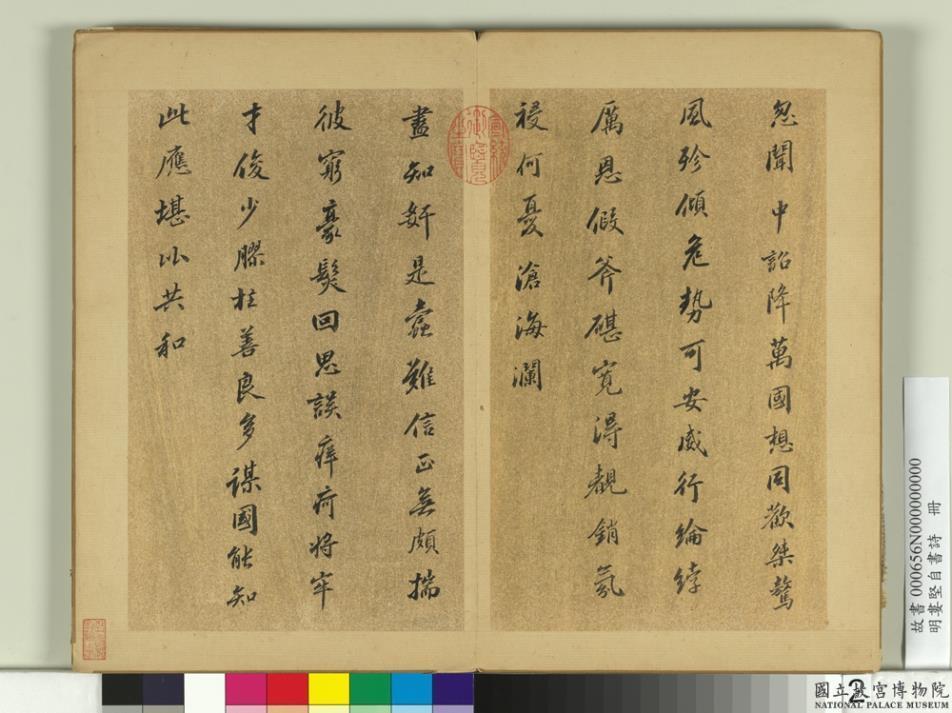 忽聞中詔降萬國想同歡桀驁
風殄傾危勢可安威行綸綍
厲恩假斧碪寬得覩銷氛
祲何憂滄海瀾
盡知奸是蠧難信正無頗揣
彼窮豪髮回思誤痒疴將牢
才俊少膠柱善良多謀國能知
此應堪以共和
故書 000656N000000000
明婁堅自書詩 冊
2
國立故宮博物院
NATIONAL PALACE MUSEUM